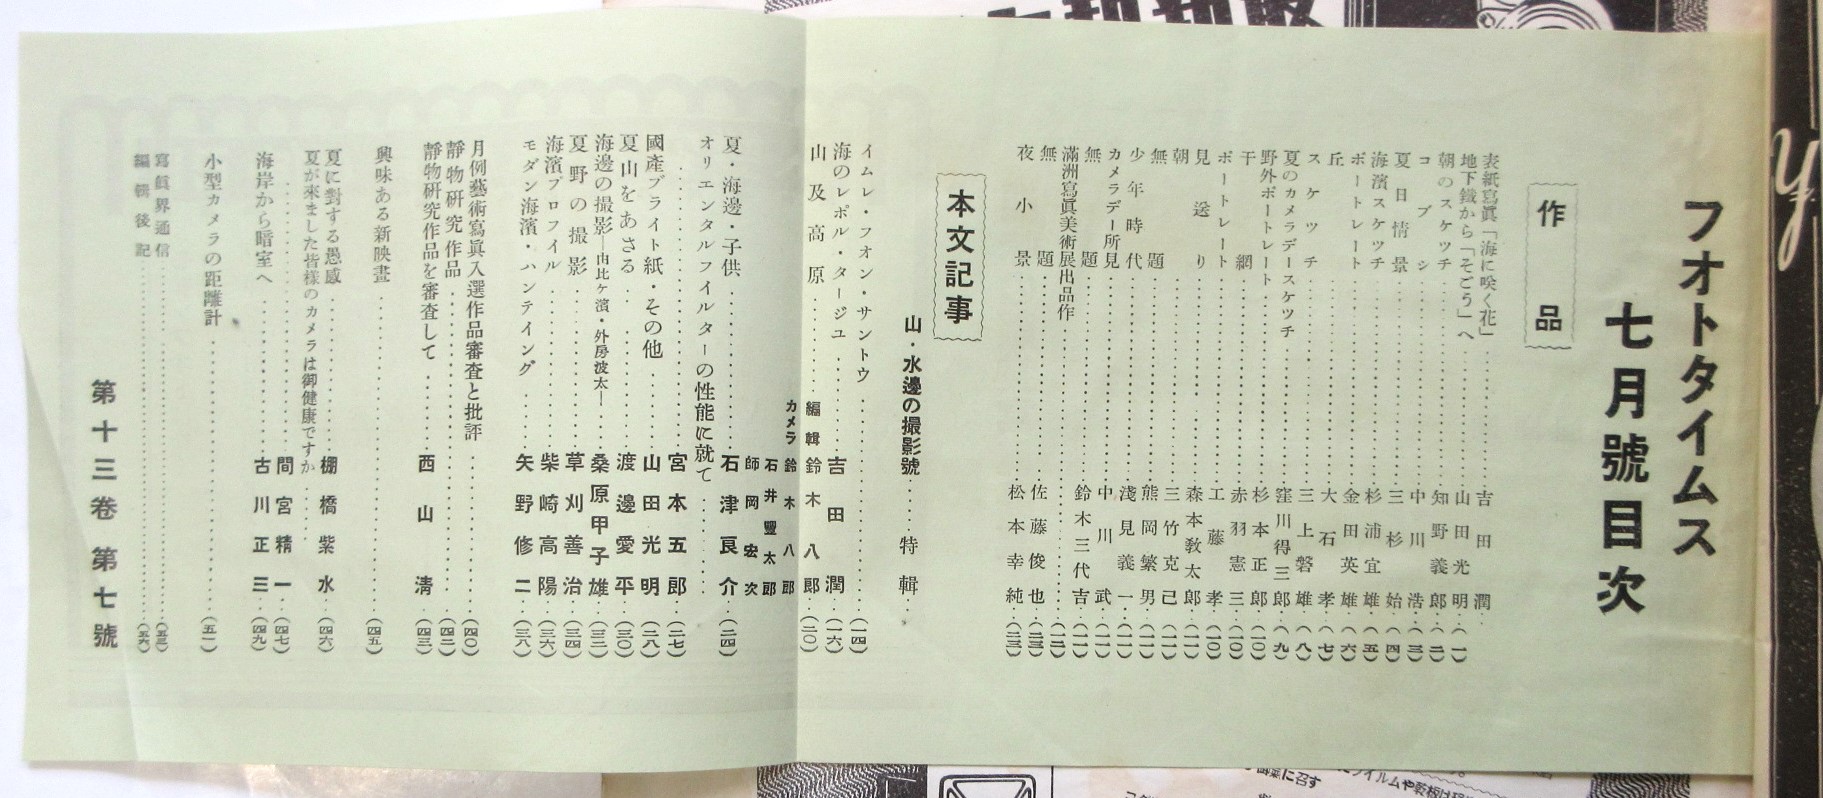 フオトタイムス
七月號目次
作品
表紙寫眞「海に咲く花」……吉田潤
地下鐵から「そごう」へ……山田光明…(一)
朝のスケッチ……知野義郎…(二)
コブシ……中川浩…(三)
夏日情景……三杉始…(四)
海濱スケッチ……杉浦宜雄…(五)
ポートレート……金田英雄…(六)
丘……大石孝…(七)
スケッチ……三上磐雄…(八)
夏のカメラデースケッチ……窪川得三郎…(九)
野外ポートレート……杉本正郎…(一〇)
干網……赤羽憲三…(一〇)
ポートレート……工藤孝…(一〇)
見送り……森本敎太郎…(一一)
朝……三竹克己…(一一)
無題……熊岡繁男…(一一)
少年時代……淺見義一…(一一)
カメラデー所見……中川武…(一一)
無題……鈴木三代吉…(一一)
滿洲寫眞美術展出品作……(一二)
無題……佐藤俊也…(二三)
夜小景……松本幸純…(二三)
本文記事
山・水邊の撮影號……特輯
イムレ・フオン・サントウ……(一四)
海のレポル・タージユ……吉田潤…(一六)
山及高原……編輯 鈴木八郎…(二〇)
カメラ 鈴木八郎
石井豐太郎
師岡宏次
夏・海邊・子供……石津良介…(二四)
オリエンタルフイルターの性能に就て……
……宮本五郎…(二七)
國產ブライト紙・その他……山田光明…(二八)
夏山をあさる……渡邊愛平…(三〇)
海邊の撮影―由比ヶ濱・外房波太―……桑原甲子雄…(三二)
夏野の撮影……草刈善治…(三四)
海濱プロフイル……柴崎高陽…(三六)
モダン海濱・ハンテイング……矢野修二…(三八)
月例藝術寫眞入選作品審査と批評……(四〇)
靜物硏究作品……(四二)
靜物硏究作品を審査して……西山淸…(四三)
興味ある新映畫……(四五)
夏に對する愚感……棚橋紫水…(四六)
夏が來ました皆樣のカメラは御健康ですか……
……間宮精一…(四七)
海岸から暗室へ……古川正三…(四九)
小型カメラの距離計……(五一)
寫眞界通信……(五三)
編輯後記……(五六)
第十三卷 第七號